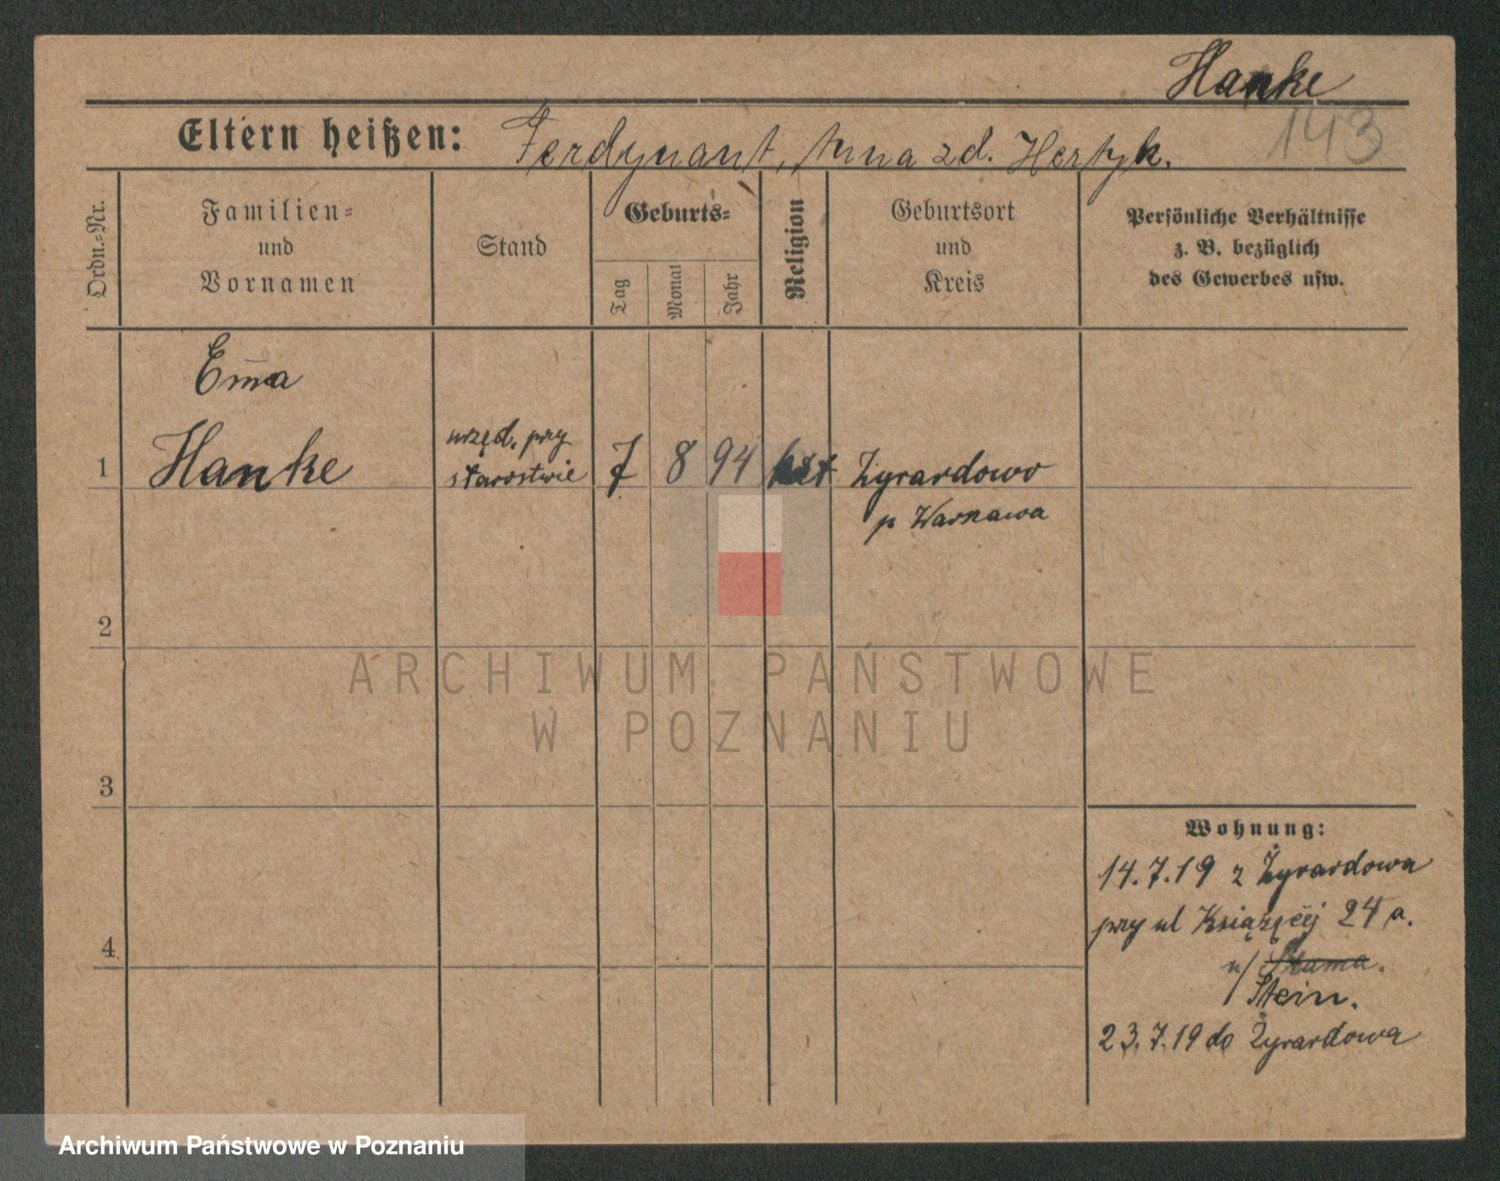 Hanke
143
Eltern heißen: Ferdynant, Anna zd. Hertyk.
Ordn.-Nr.
Familien- und Vornamen
Stand
Geburts-
Tag
Monat
Jahr
Religion
Geburtsort und Kreis
Persönliche Verhältnisse
z. B. bezüglich
des Gewerbes usw.
Em̄a
1 Hanke
urzęd. przy
starostwie
7 8 94
Żyrardowo
p Warszawa
2
3
4
ARCHIWUM PAŃSTWOWE
W POZNANIU
Wohnung:
14.7.19 z Żyrardowa
przy ul Książęcej 24 a.
u/ Stama.
Stein.
23.7.19 do Żyrardowa
Archiwum Państwowe w Poznaniu